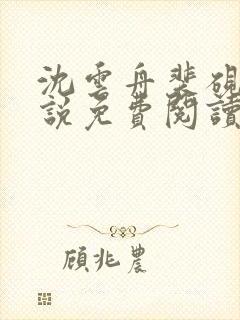 沈雲舟裴硯
說免費閱讀
顧兆農